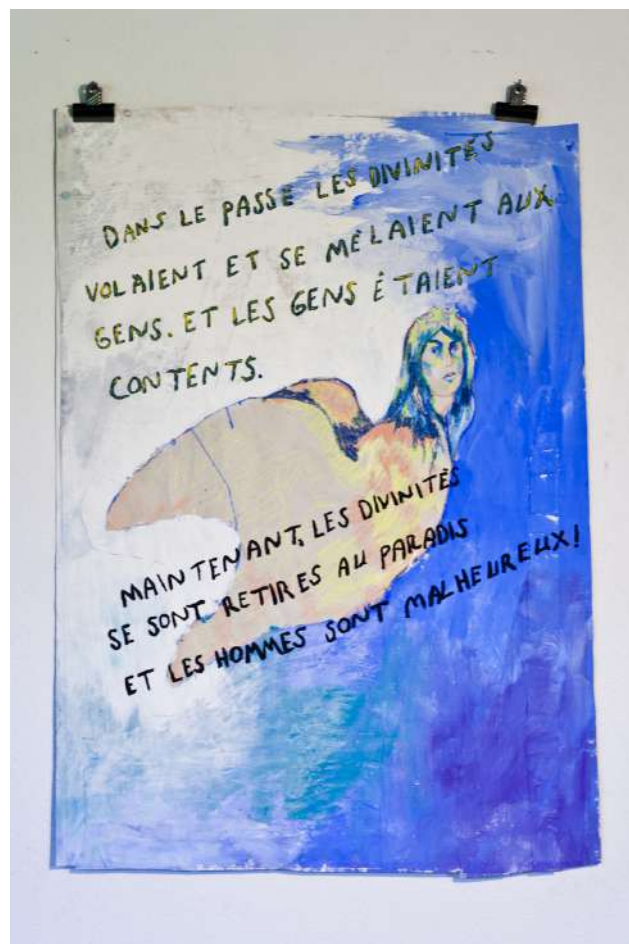 DANS LE PASSE LES DIVINITÉS
VOLAIENT ET SE MÊLAIENT AUX
GENS. ET LES GENS ÉTAIENT
CONTENTS.
MAINTENANT, LES DIVINITÉS
SE SONT RETIRES AU PARADIS
ET LES HOMMES SONT MALHEUREUX!